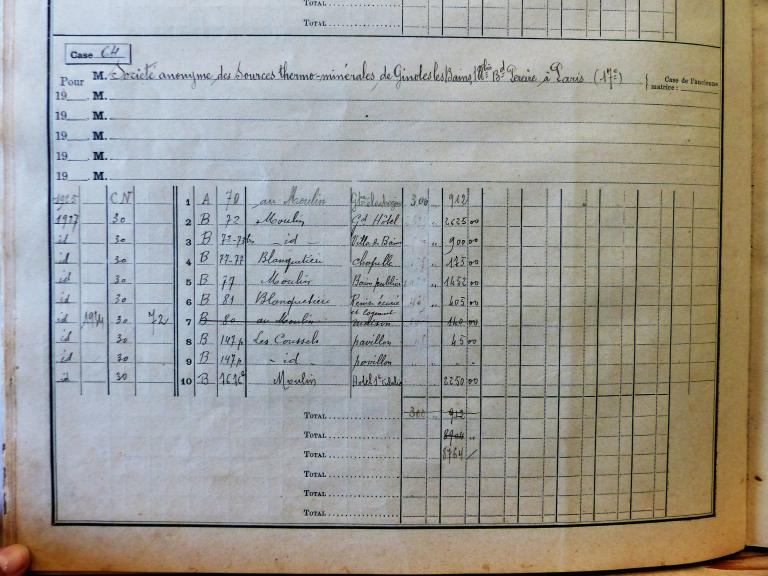 Total
Total
Case 64
Pour M. Société anonyme des Sources thermo-minérales de Ginoles les Bains, Bd Pereire à Paris (17e) Case de l'ancienne matrice :
19 M.
19 M.
19 M.
19 M.
19 M.
1925 CN 1 A 70 au Moulin 300 912
1927 30 2 B 72 Moulin Gd Hôtel 2625 00
id 30 3 B id Villa 900 00
id 30 4 B 77-77 Blanquetière Chapelle 175 00
id 30 5 B 77 Moulin Bains publics 1452 00
id 30 6 B 81 Blanquetière Remise écurie et logement 405 00
id 1934 30 72 7 B 80 au Moulin maison 140 00
id 30 8 B 147p Les Coussols pavillon 45 00
id 30 9 B 147p id pavillon
id 30 10 B Moulin Hotel 2250 00
Total 300 912
Total
Total 8764
Total
Total
Total